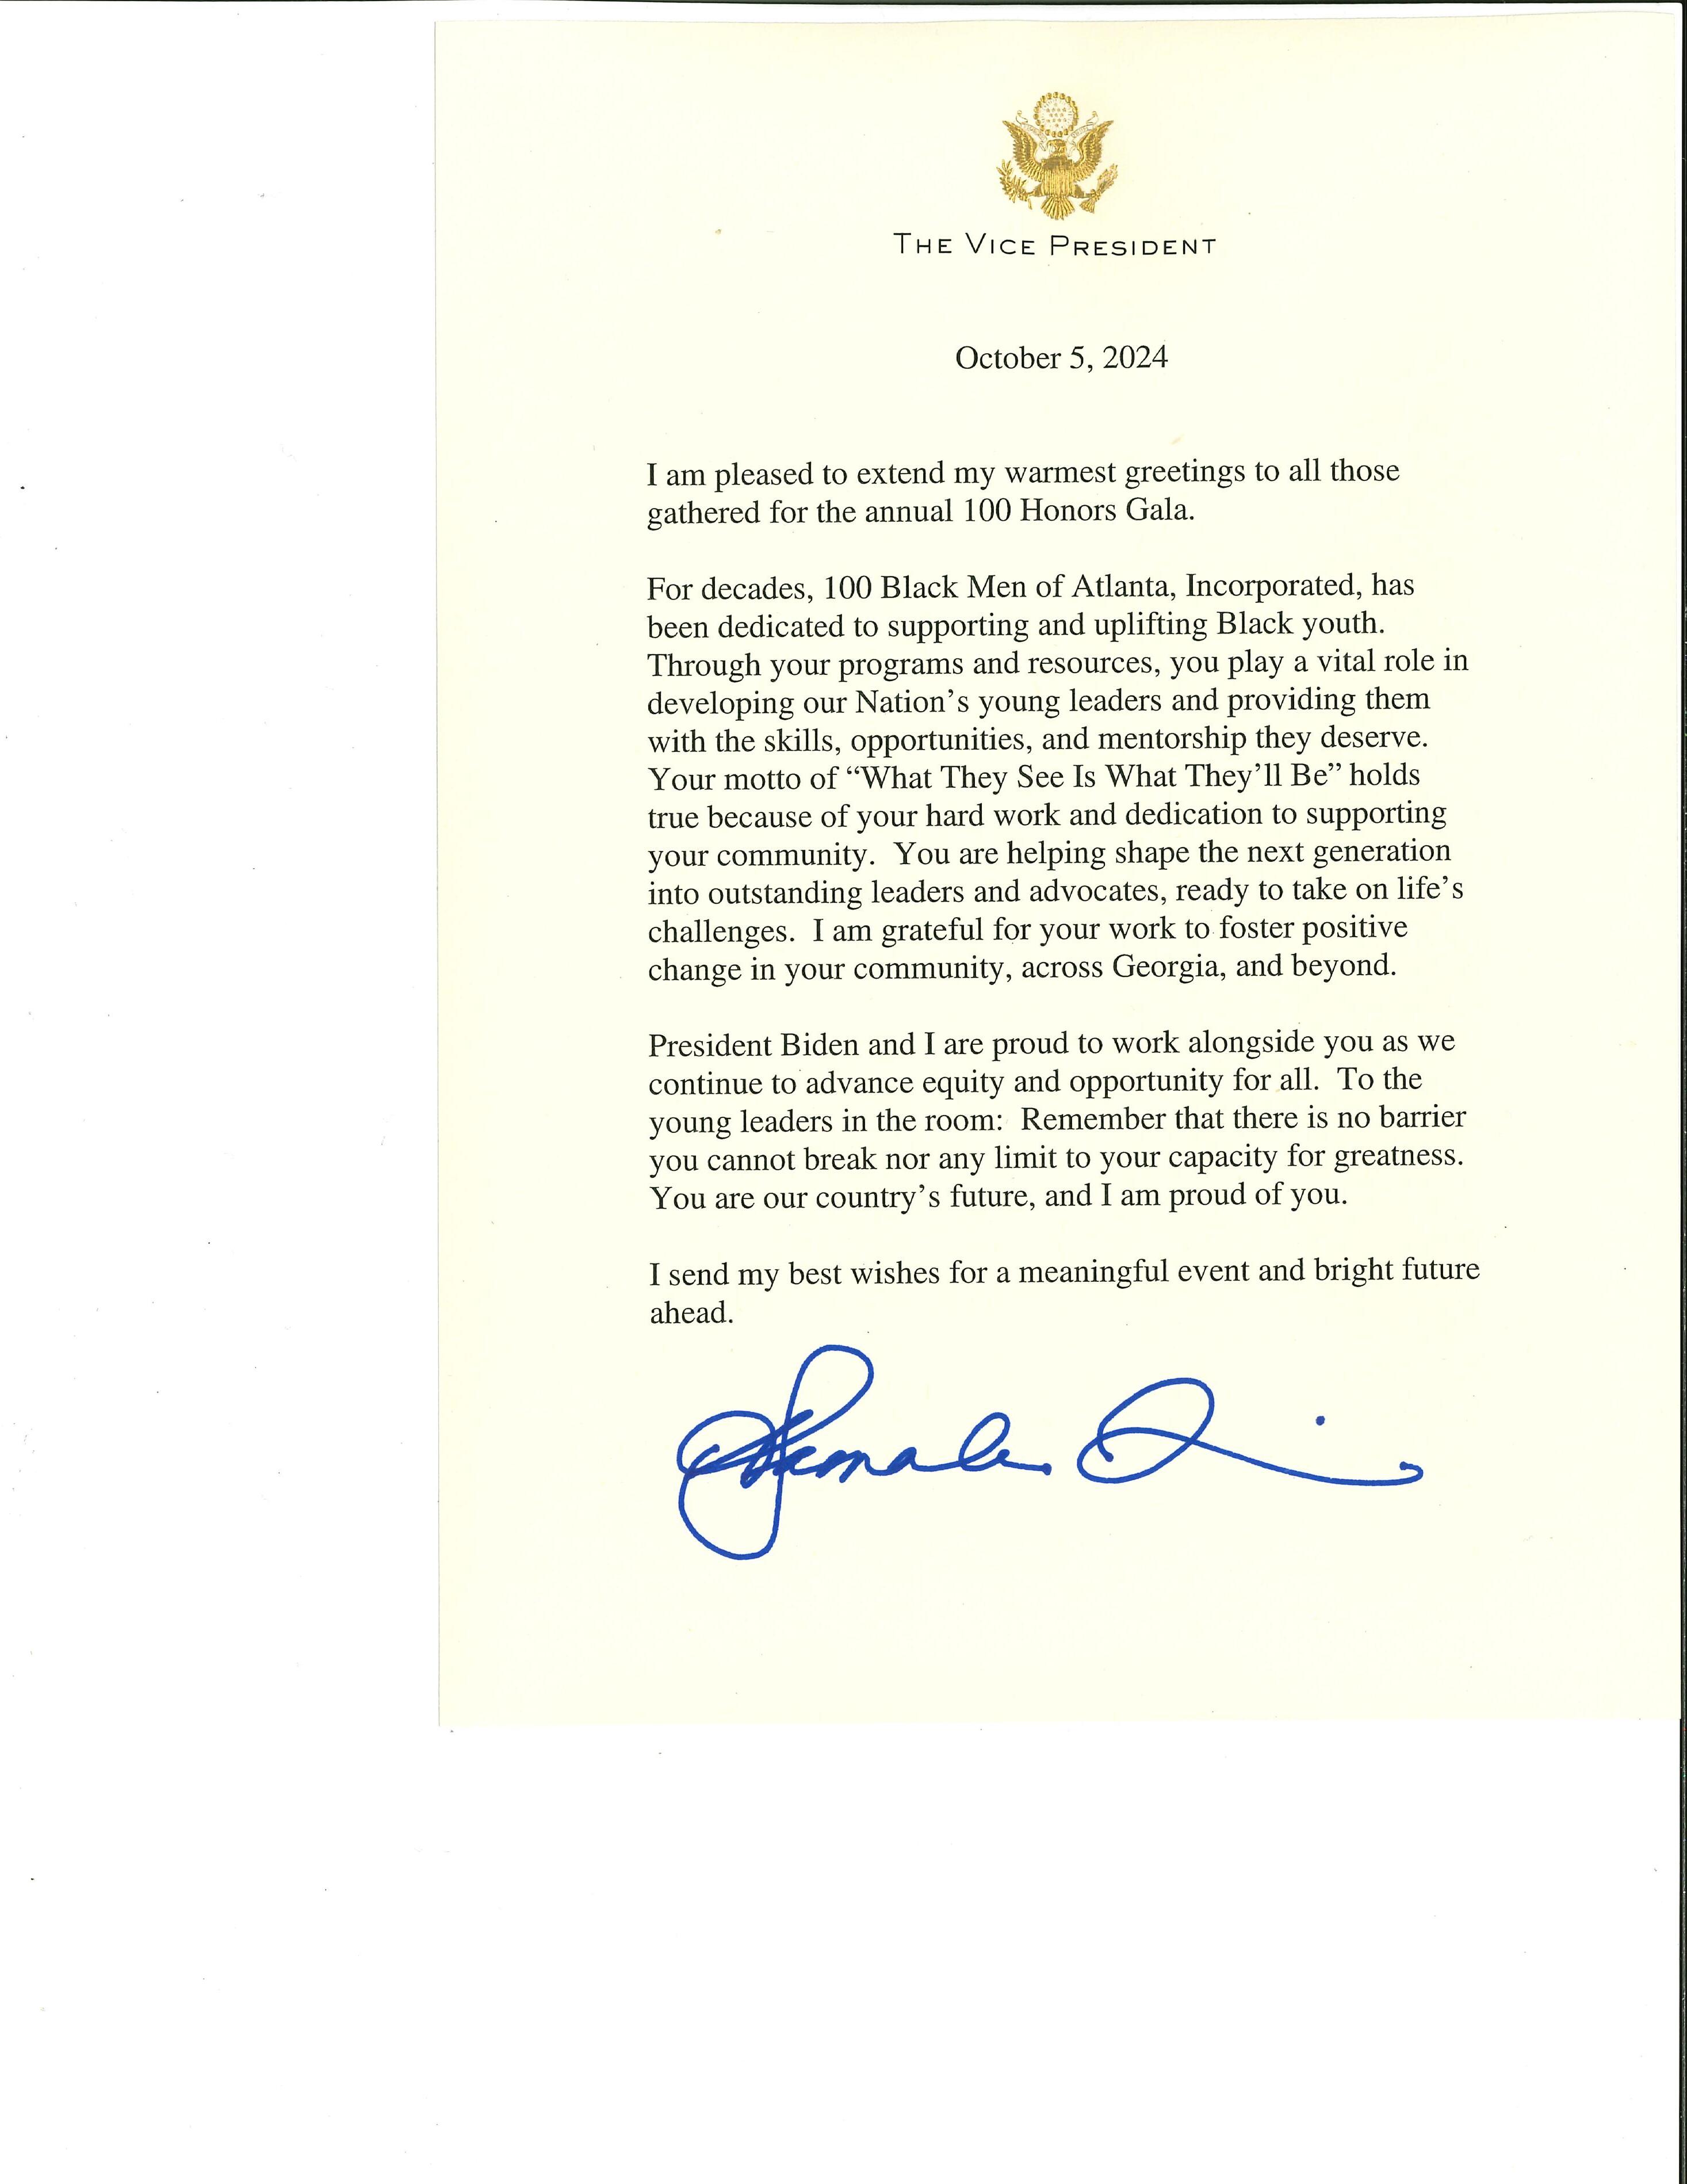 THE VICE PRESIDENT
October 5, 2024
I am pleased to extend my warmest greetings to all those
gathered for the annual 100 Honors Gala.
For decades, 100 Black Men of Atlanta, Incorporated, has
been dedicated to supporting and uplifting Black youth.
Through your programs and resources, you play a vital role in
developing our Nation’s young leaders and providing them
with the skills, opportunities, and mentorship they deserve.
Your motto of “What They See Is What They’ll Be” holds
true because of your hard work and dedication to supporting
your community.  You are helping shape the next generation
into outstanding leaders and advocates, ready to take on life’s
challenges.  I am grateful for your work to foster positive
change in your community, across Georgia, and beyond.
President Biden and I are proud to work alongside you as we
continue to advance equity and opportunity for all.  To the
young leaders in the room:  Remember that there is no barrier
you cannot break nor any limit to your capacity for greatness.
You are our country’s future, and I am proud of you.
I send my best wishes for a meaningful event and bright future
ahead.